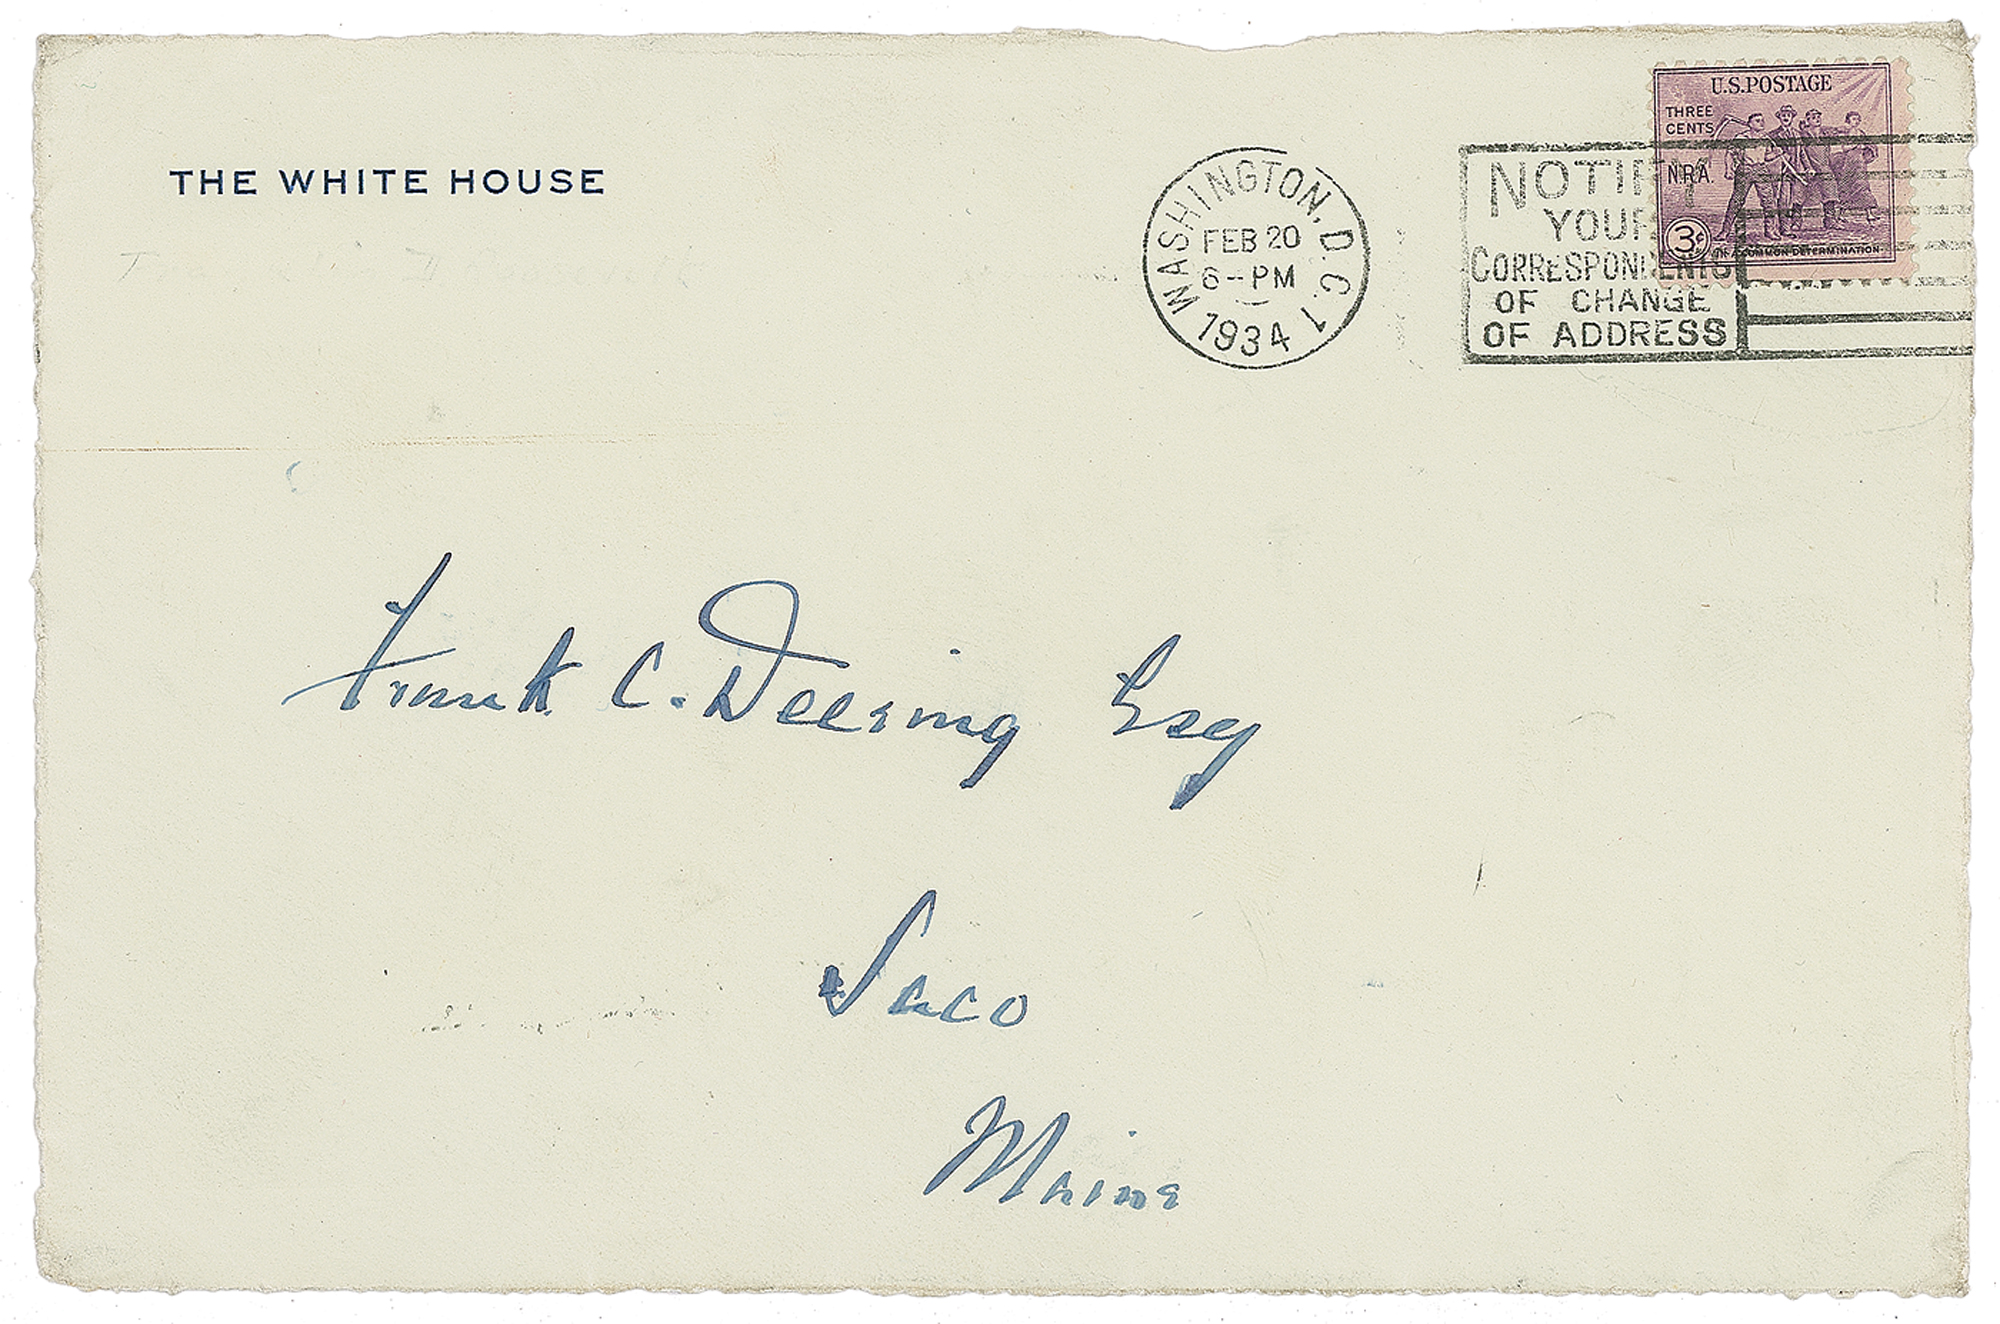 THE WHITE HOUSE
WASHINGTON, D.C. 1
FEB 20
6-PM
1934
NOTIFY
YOUR
CORRESPONDENTS
OF CHANGE
OF ADDRESS
U.S. POSTAGE
THREE
CENTS
N.R.A.
3¢
IN A COMMON DETERMINATION
Frank C. Deering Esq
Saco
Maine